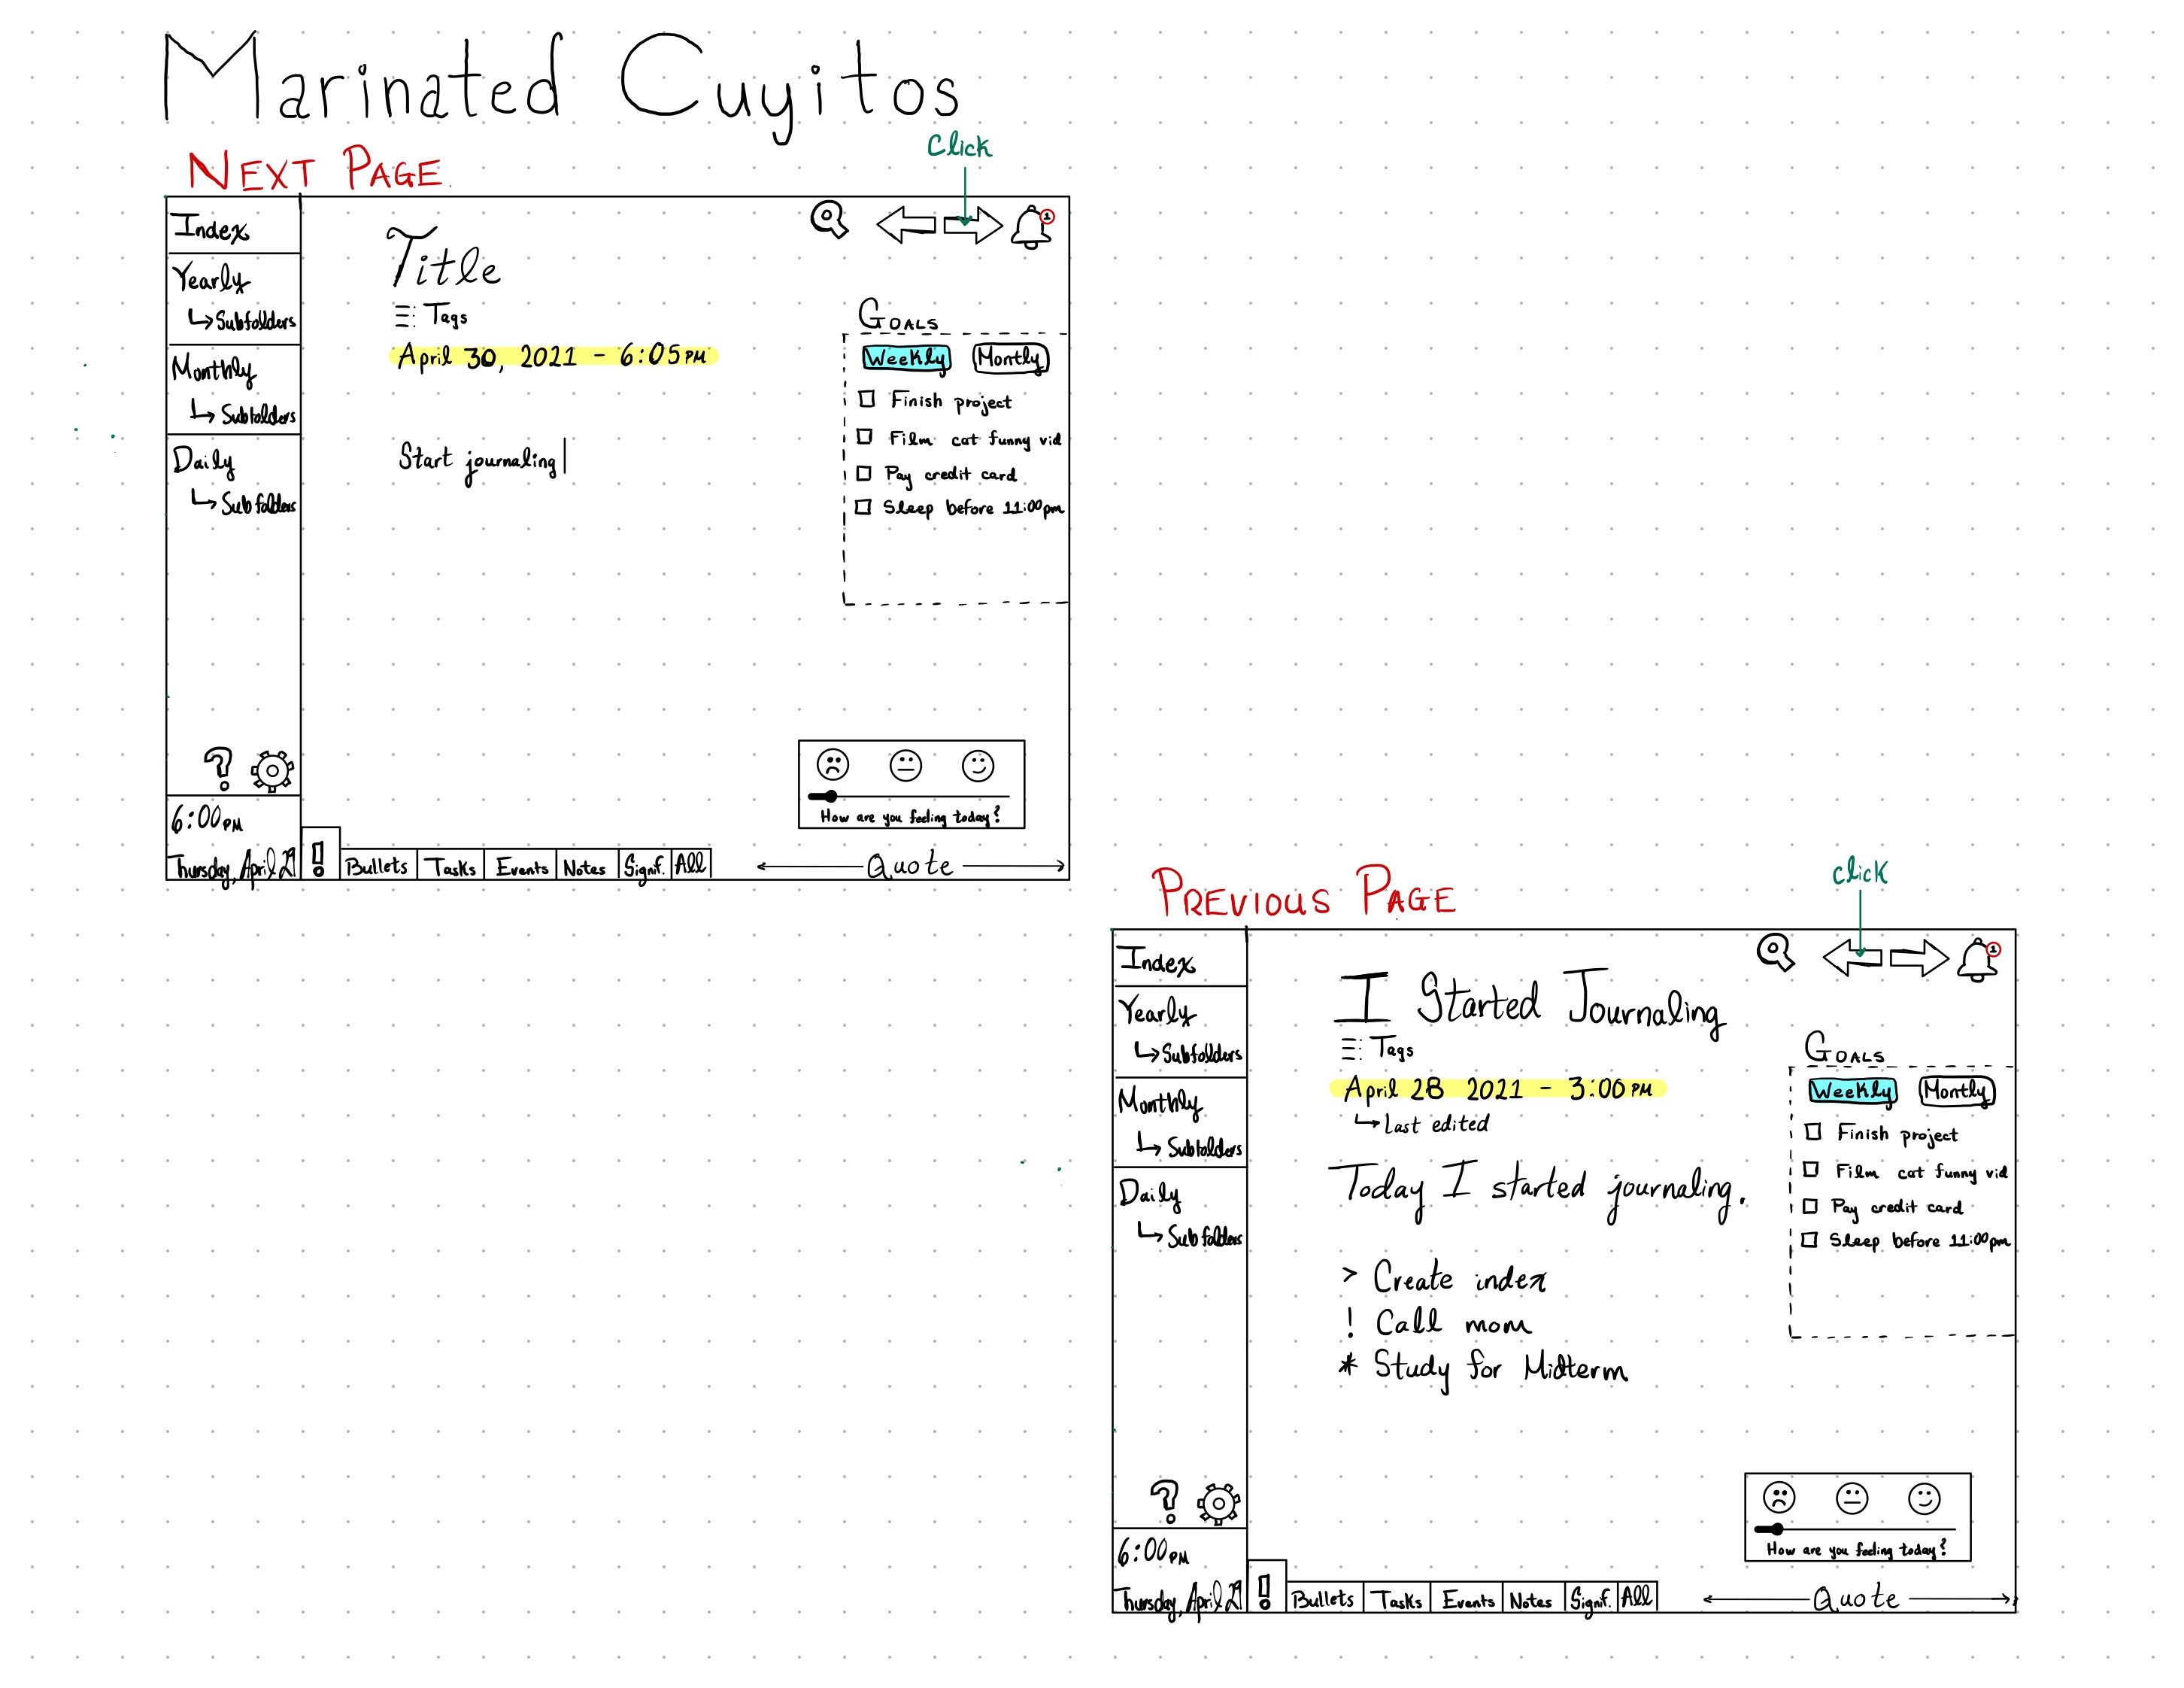 Marinated Cuyitos
NEXT PAGE
Click
Index
Yearly
Subfolders
Monthly
Subfolders
Daily
Subfolders
?
6:00 PM
Thursday, April 29
Title
Tags
April 30, 2021 - 6:05 PM
Start journaling
1
GOALS
Weekly Montly
Finish project
Film cat funny vid
Pay credit card
Sleep before 11:00pm
How are you feeling today?
! Bullets Tasks Events Notes Signif. All
Quote
PREVIOUS PAGE
click
Index
Yearly
Subfolders
Monthly
Subfolders
Daily
Subfolders
?
6:00 PM
Thursday, April 29
I Started Journaling
Tags
April 28 2021 - 3:00 PM
Last edited
Today I started journaling.
> Create index
! Call mom
* Study for Midterm
1
GOALS
Weekly Montly
Finish project
Film cat funny vid
Pay credit card
Sleep before 11:00pm
How are you feeling today?
! Bullets Tasks Events Notes Signif. All
Quote